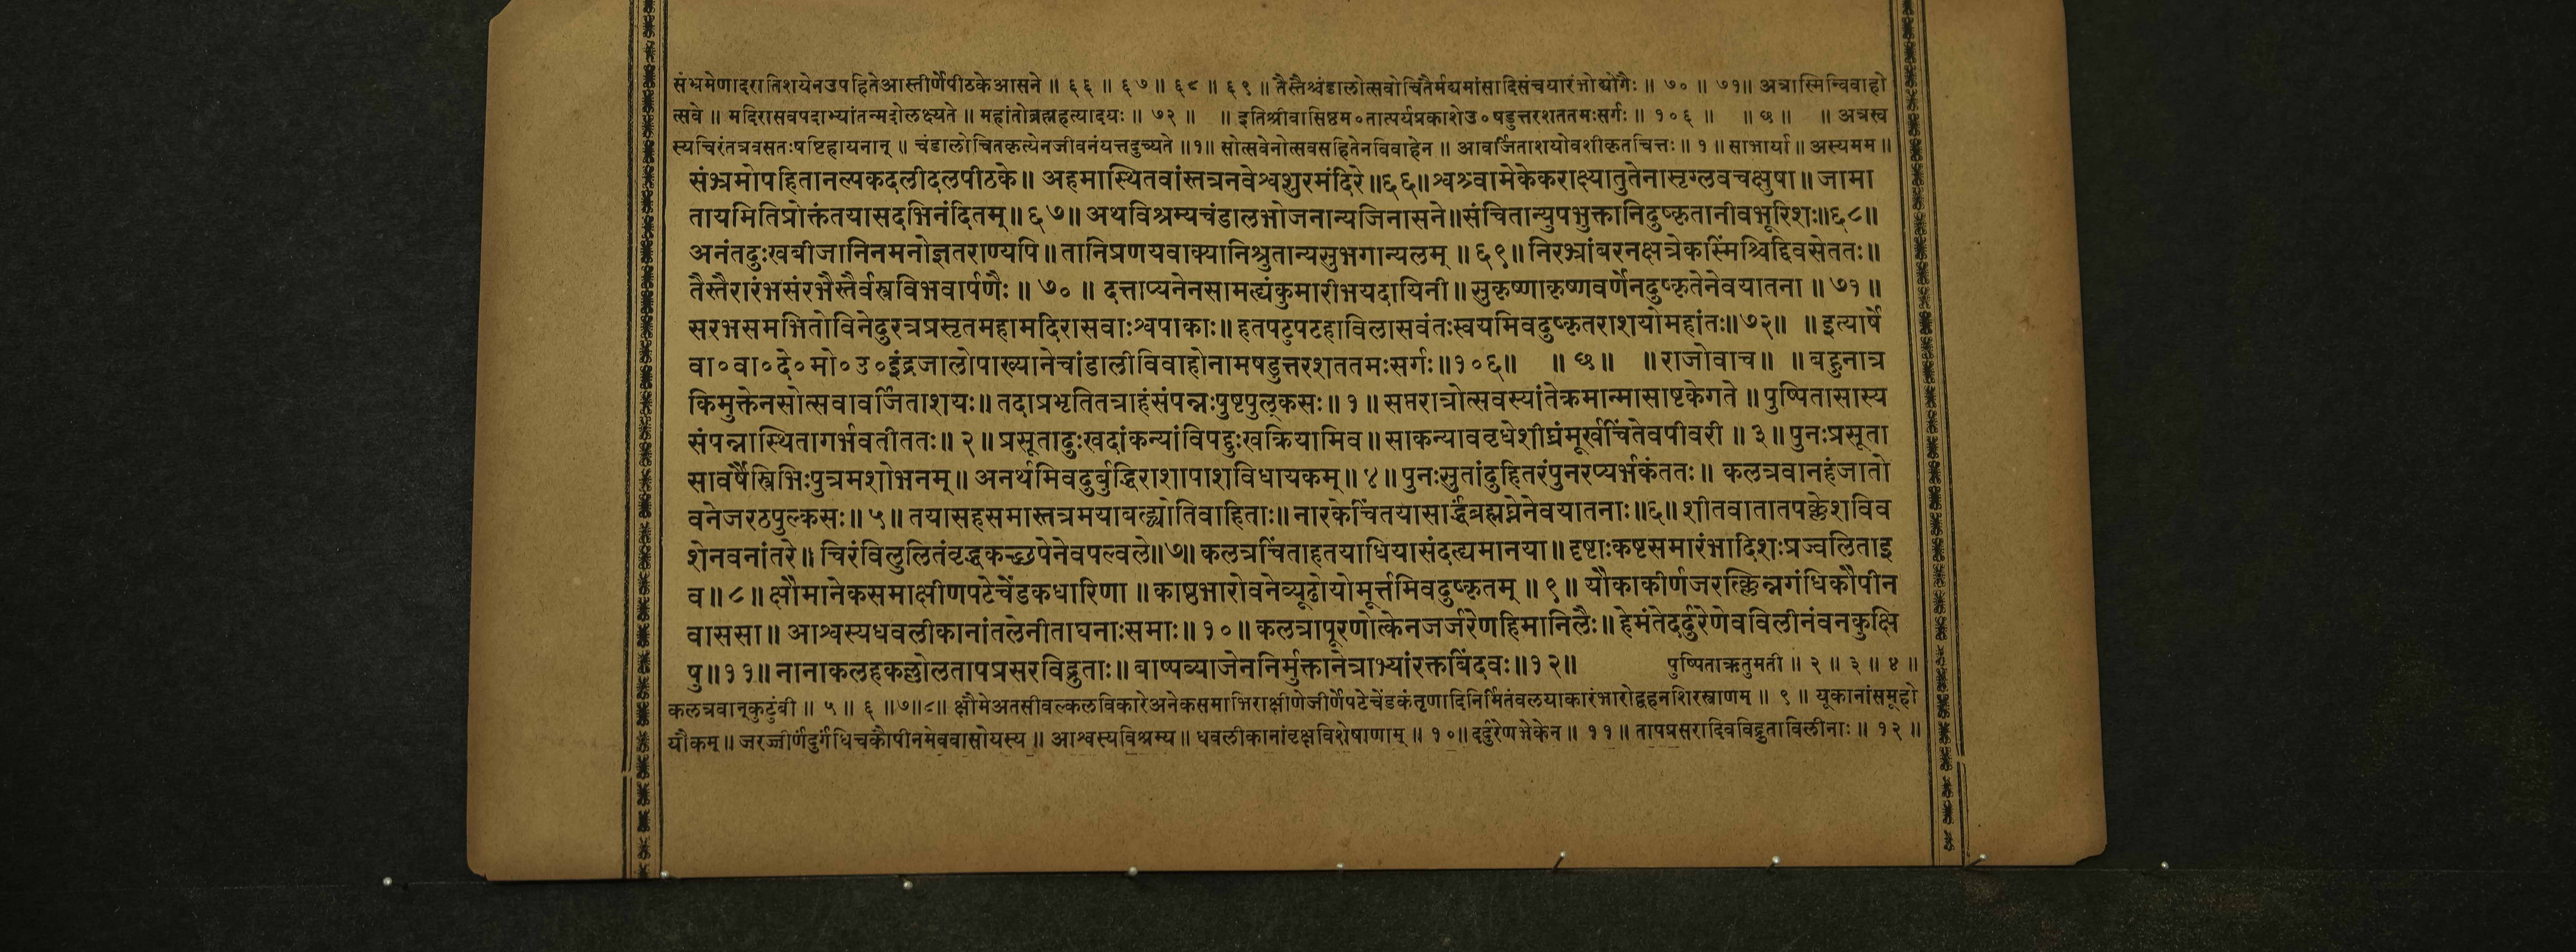 संभ्रमेणादरातिशयेनउपहितेआस्तीर्णेपीठकेआसने ॥ ६६ ॥ ६७ ॥ ६८ ॥ ६९ ॥ तैस्तैश्चंडालोत्सवोचितैर्मद्यमांसादिसंचयारंभोद्योगैः ॥ ७० ॥ ७१॥ अत्रास्मिन्विवाहो
त्सवे ॥ मदिरासवपदाभ्यांतन्मदोलक्ष्यते ॥ महांतोब्रह्महत्यादयः ॥ ७२ ॥ ॥ इतिश्रीवासिष्ठम०तात्पर्यप्रकाशेउ०षडुत्तरशततमःसर्गः ॥ १०६ ॥ ॥ छ ॥ ॥ अत्रस्व
स्यचिरंतत्रवसतःषष्टिहायनान् ॥ चंडालोचितकृत्येनजीवनंयत्तदुच्यते ॥१॥ सोत्सवेनोत्सवसहितेनविवाहेन ॥ आवर्जिताशयोवशीकृतचित्तः ॥ १ ॥ साभार्या ॥ अस्यमम ॥
संभ्रमोपहितानल्पकदलीदलपीठके॥ अहमास्थितवांस्तत्रनवेश्वशुरमंदिरे॥६६॥श्वश्र्वामेकेकराक्ष्यातुतेनासृग्लवचक्षुषा॥ जामा
तायमितिप्रोक्तंतयासदभिनंदितम्॥ ६७॥ अथविश्रम्यचंडालभोजनान्यजिनासने॥संचितान्युपभुक्तानिदुष्कृतानीवभूरिशः॥६८॥
अनंतदुःखबीजानिनमनोज्ञतराण्यपि॥ तानिप्रणयवाक्यानिश्रुतान्यसुभगान्यलम् ॥ ६९॥ निरभ्रांबरनक्षत्रेकस्मिंश्चिद्दिवसेततः॥
तैस्तैरारंभसंरंभैस्तैर्वस्त्रविभवार्पणैः ॥ ७० ॥ दत्ताप्यनेनसामत्द्यंकुमारीभयदायिनी॥ सुकृष्णाकृष्णवर्णेनदुष्कृतेनेवयातना ॥ ७१ ॥
सरभसमभितोविनेदुरत्रप्रसृतमहामदिरासवाःश्वपाकाः॥ हतपटुपटहाविलासवंतःस्वयमिवदुष्कृतराशयोमहांतः॥७२॥ ॥ इत्यार्षे
वा०वा०दे०मो०उ०इंद्रजालोपाख्यानेचांडालीविवाहोनामषडुत्तरशततमःसर्गः॥१०६॥ ॥ छ ॥ ॥ राजोवाच ॥ ॥ बहुनात्र
किमुक्तेनसोत्सवावर्जिताशयः॥ तदाप्रभृतितत्राहंसंपन्नःपुष्टपुल्कसः॥ १ ॥ सप्तरात्रोत्सवस्यांतेक्रमान्मासाष्टकेगते ॥ पुष्पितासास्य
संपन्नास्थितागर्भवतीततः॥ २॥ प्रसूतादुःखदांकन्यांविपद्दुःखक्रियामिव॥ साकन्याववृधेशीघ्रंमूर्खचिंतेवपीवरी ॥ ३॥ पुनःप्रसूता
सावर्षैस्त्रिभिःपुत्रमशोभनम्॥ अनर्थमिवदुर्बुद्धिराशापाशविधायकम्॥ ४॥ पुनःसुतांदुहितरंपुनरप्यर्भकंततः॥ कलत्रवानहंजातो
वनेजरठपुल्कसः॥ ५॥ तयासहसमास्तत्रमयाबत्द्योतिवाहिताः॥ नारकेचिंतयासार्द्धंब्रह्मघ्नेनेवयातनाः॥६॥ शीतवातातपक्लेशविव
शेनवनांतरे॥ चिरंविलुलितंवृद्धकच्छपेनेवपल्वले॥७॥ कलत्रचिंताहतयाधियासंदत्द्यमानया॥ दृष्टाःकष्टसमारंभादिशःप्रज्वलिताइ
व॥ ८॥ क्षौमानेकसमाक्षीणपटेचेंडकधारिणा ॥ काष्ठभारोवनेव्यूढोयोमूर्त्तमिवदुष्कृतम् ॥ ९॥ यौकाकीर्णजरत्क्लिन्नगंधिकौपीन
वाससा॥ आश्वस्यधवलीकानांतलेनीताघनाःसमाः॥ १०॥ कलत्रापूरणोत्केनजर्जरेणहिमानिलैः॥ हेमंतेदर्दुरेणेवविलीनंवनकुक्षि
षु॥११॥ नानाकलहकल्लोलतापप्रसरविद्रुताः॥ बाष्पव्याजेननिर्मुक्तानेत्राभ्यांरक्तबिंदवः॥१२॥ पुष्पिताऋतुमती ॥ २ ॥ ३ ॥ ४ ॥
कलत्रवान्कुटुंबी ॥ ५ ॥ ६ ॥७॥८॥ क्षौमेअतसीवल्कलविकारेअनेकसमाभिराक्षीणेजीर्णेपटेचेंडकंतृणादिनिर्मितंवलयाकारंभारोद्वहनशिरस्त्राणम् ॥ ९ ॥ यूकानांसमूहो
यौकम्॥ जरज्जीर्णंदुर्गंधिचकौपीनमेववासोयस्य ॥ आश्वस्यविश्रम्य ॥ धवलीकानांवृक्षविशेषाणाम् ॥ १०॥ दर्दुरेणभेकेन ॥ ११ ॥ तापप्रसरादिवविद्रुताविलीनाः ॥ १२ ॥